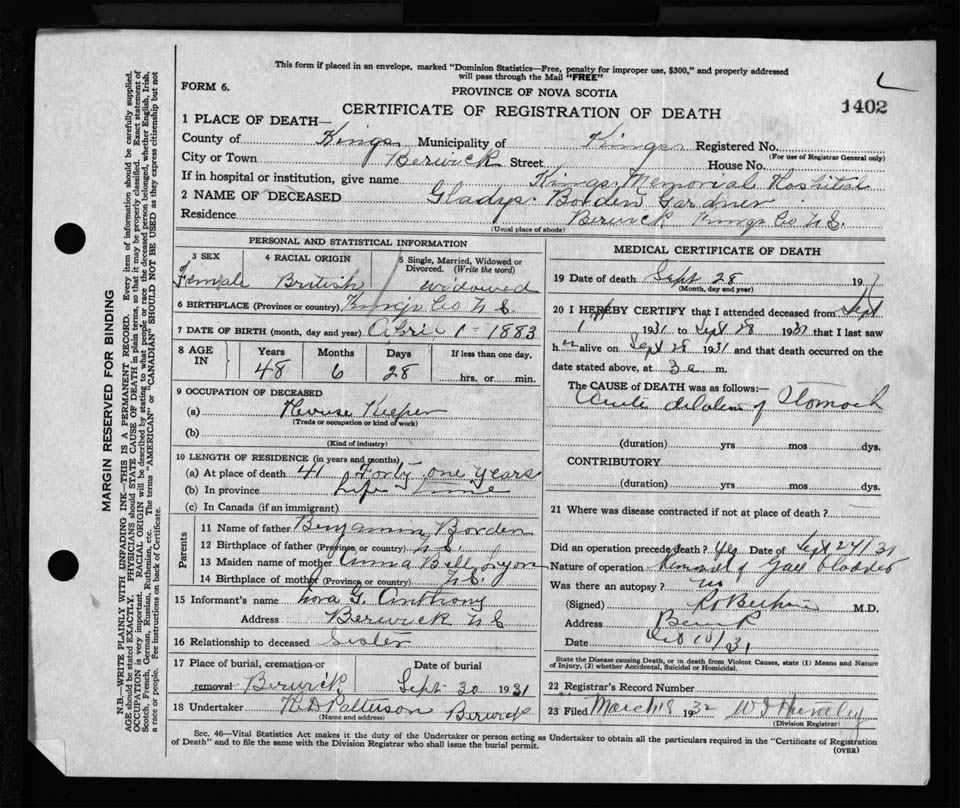 This form if placed in an envelope, marked "Dominion Statistics—Free, penalty for improper use, $300," and properly addressed
will pass through the Mail "FREE"
FORM 6.
PROVINCE OF NOVA SCOTIA
1402
CERTIFICATE OF REGISTRATION OF DEATH
1 PLACE OF DEATH—
County of Kings Municipality of Kings Registered No.
(For use of Registrar General only)
City or Town Berwick Street House No.
If in hospital or institution, give name Kings Memorial Hospital
2 NAME OF DECEASED Gladys Borden Gardner
Residence Berwick Kings Co N.S.
(Usual place of abode)
PERSONAL AND STATISTICAL INFORMATION
3 SEX
Female
4 RACIAL ORIGIN
British
5 Single, Married, Widowed or
Divorced. (Write the word)
widowed
6 BIRTHPLACE (Province or country) Kings Co N S
7 DATE OF BIRTH (month, day and year) April 1 - 1883
8 AGE
IN
Years
48
Months
6
Days
28
If less than one day,
hrs. or min.
9 OCCUPATION OF DECEASED
(a) House Keeper
(Trade or occupation or kind of work)
(b)
(Kind of industry)
10 LENGTH OF RESIDENCE (in years and months)
(a) At place of death 41 Forty one years
(b) In province Life Time
(c) In Canada (if an immigrant)
Parents
11 Name of father Benjamin Borden
12 Birthplace of father (Province or country) N.S.
13 Maiden name of mother Anna Bell Lyon
14 Birthplace of mother (Province or country) N.S.
15 Informant's name Cora G. Anthony
Address Berwick N S
16 Relationship to deceased Sister
17 Place of burial, cremation or
removal Berwick
Date of burial
Sept 30 1931
18 Undertaker Patterson Berwick
(Name and address)
MEDICAL CERTIFICATE OF DEATH
19 Date of death Sept 28 19
(Month, day and year)
20 I HEREBY CERTIFY that I attended deceased from Sept
1 1931 to Sept 28 1931 that I last saw
h er alive on Sept 28 1931 and that death occurred on the
date stated above, at 3 a m.
The CAUSE OF DEATH was as follows:—
Acute dilation of Stomach
(duration) yrs mos dys.
CONTRIBUTORY
(duration) yrs mos dys.
21 Where was disease contracted if not at place of death?
Did an operation precede death? Yes Date of Sept 24/31
Nature of operation Removal of Gall bladder
Was there an autopsy? no
(Signed) M.D.
Address Berwick
Date Oct 10/31
State the Disease causing Death, or in death from Violent Causes, state (1) Means and Nature
of Injury, (2) whether Accidental, Suicidal or Homicidal.
22 Registrar's Record Number
23 Filed March 1932
(Division Registrar)
Sec. 46—Vital Statistics Act makes it the duty of the Undertaker or person acting as Undertaker to obtain all the particulars required in the "Certificate of Registration
of Death" and to file the same with the Division Registrar who shall issue the burial permit.
(OVER)
MARGIN RESERVED FOR BINDING
N.B.—WRITE PLAINLY WITH UNFADING INK—THIS IS A PERMANENT RECORD. Every item of information should be carefully supplied.
AGE should be stated EXACTLY. PHYSICIANS should STATE CAUSE OF DEATH in plain terms, so that it may be properly classified. Exact statement of
OCCUPATION is very important. RACIAL ORIGIN will be described by stating to what people or race the deceased person belonged, whether English, Irish,
Scotch, French, German, Russian, Ruthenian, etc. The terms "AMERICAN" or "CANADIAN" SHOULD NOT BE USED as they express citizenship but not
a race or people. See instructions on back of Certificate.